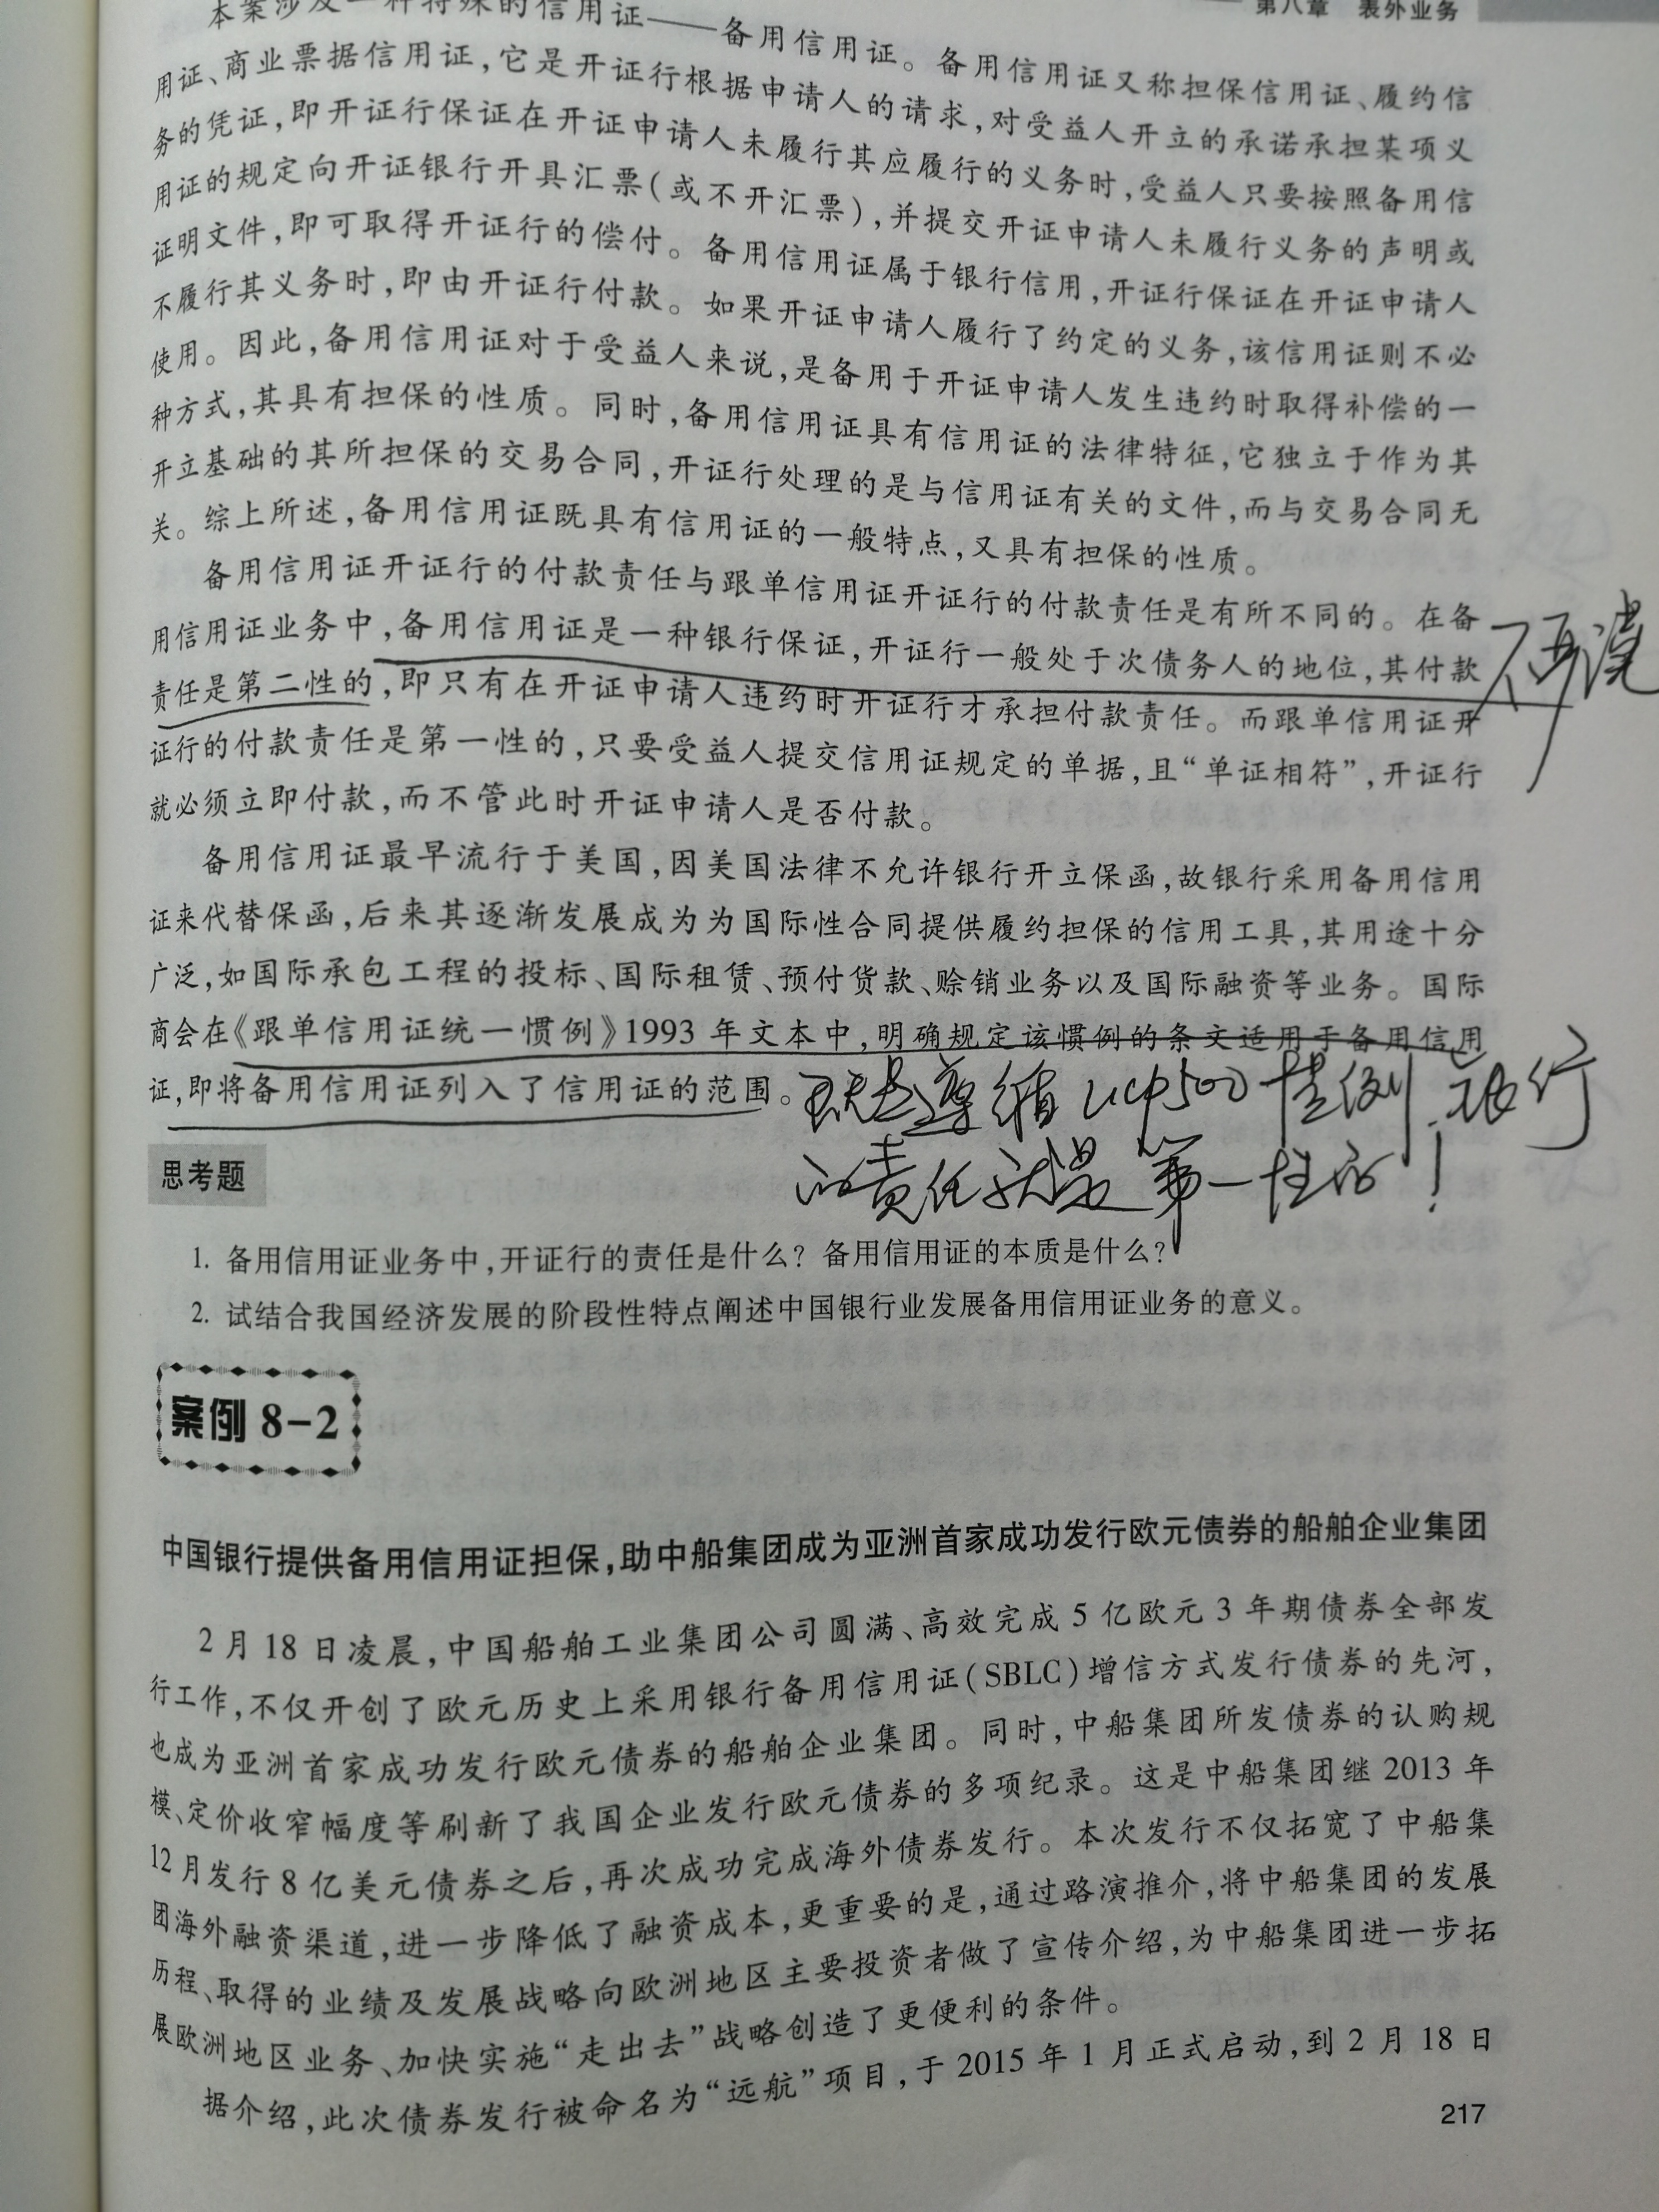 第八章 表外业务
本案涉及一种特殊的信用证——备用信用证。备用信用证又称担保信用证、履约信
用证、商业票据信用证,它是开证行根据申请人的请求,对受益人开立的承诺承担某项义
务的凭证,即开证行保证在开证申请人未履行其应履行的义务时,受益人只要按照备用信
用证的规定向开证银行开具汇票(或不开汇票),并提交开证申请人未履行义务的声明或
证明文件,即可取得开证行的偿付。备用信用证属于银行信用,开证行保证在开证申请人
不履行其义务时,即由开证行付款。如果开证申请人履行了约定的义务,该信用证则不必
使用。因此,备用信用证对于受益人来说,是备用于开证申请人发生违约时取得补偿的一
种方式,其具有担保的性质。同时,备用信用证具有信用证的法律特征,它独立于作为其
开立基础的其所担保的交易合同,开证行处理的是与信用证有关的文件,而与交易合同无
关。综上所述,备用信用证既具有信用证的一般特点,又具有担保的性质。
备用信用证开证行的付款责任与跟单信用证开证行的付款责任是有所不同的。在备
用信用证业务中,备用信用证是一种银行保证,开证行一般处于次债务人的地位,其付款
责任是第二性的,即只有在开证申请人违约时开证行才承担付款责任。而跟单信用证开
证行的付款责任是第一性的,只要受益人提交信用证规定的单据,且“单证相符”,开证行
就必须立即付款,而不管此时开证申请人是否付款。
备用信用证最早流行于美国,因美国法律不允许银行开立保函,故银行采用备用信用
证来代替保函,后来其逐渐发展成为为国际性合同提供履约担保的信用工具,其用途十分
广泛,如国际承包工程的投标、国际租赁、预付货款、赊销业务以及国际融资等业务。国际
商会在《跟单信用证统一惯例》1993 年文本中,明确规定该惯例的条文适用于备用信用
证,即将备用信用证列入了信用证的范围。
遵循UCP500惯例
的责任就是第一性的!
思考题
1. 备用信用证业务中,开证行的责任是什么? 备用信用证的本质是什么?
2. 试结合我国经济发展的阶段性特点阐述中国银行业发展备用信用证业务的意义。
案例 8-2
中国银行提供备用信用证担保,助中船集团成为亚洲首家成功发行欧元债券的船舶企业集团
2 月 18 日凌晨,中国船舶工业集团公司圆满、高效完成 5 亿欧元 3 年期债券全部发
行工作,不仅开创了欧元历史上采用银行备用信用证(SBLC)增信方式发行债券的先河,
也成为亚洲首家成功发行欧元债券的船舶企业集团。同时,中船集团所发债券的认购规
模、定价收窄幅度等刷新了我国企业发行欧元债券的多项纪录。这是中船集团继 2013 年
12 月发行 8 亿美元债券之后,再次成功完成海外债券发行。本次发行不仅拓宽了中船集
团海外融资渠道,进一步降低了融资成本,更重要的是,通过路演推介,将中船集团的发展
历程、取得的业绩及发展战略向欧洲地区主要投资者做了宣传介绍,为中船集团进一步拓
展欧洲地区业务、加快实施“走出去”战略创造了更便利的条件。
据介绍,此次债券发行被命名为“远航”项目,于 2015 年 1 月正式启动,到 2 月 18 日
217